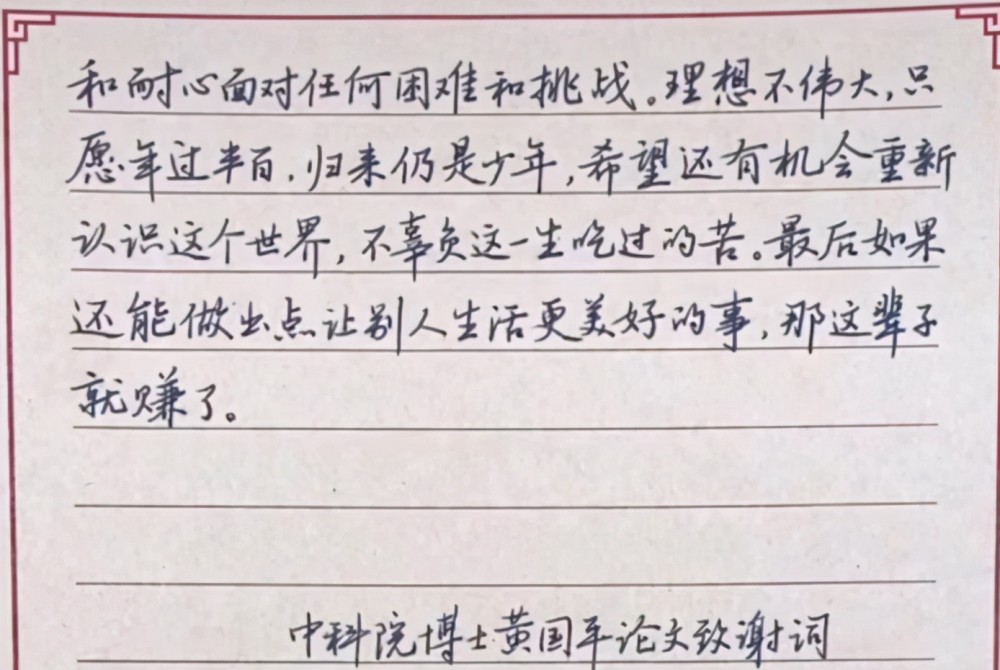 和耐心面对任何困难和挑战。理想不伟大,只
愿年过半百,归来仍是少年,希望还有机会重新
认识这个世界,不辜负这一生吃过的苦。最后如果
还能做出点让别人生活更美好的事,那这辈子
就赚了。
中科院博士黄国平论文致谢词